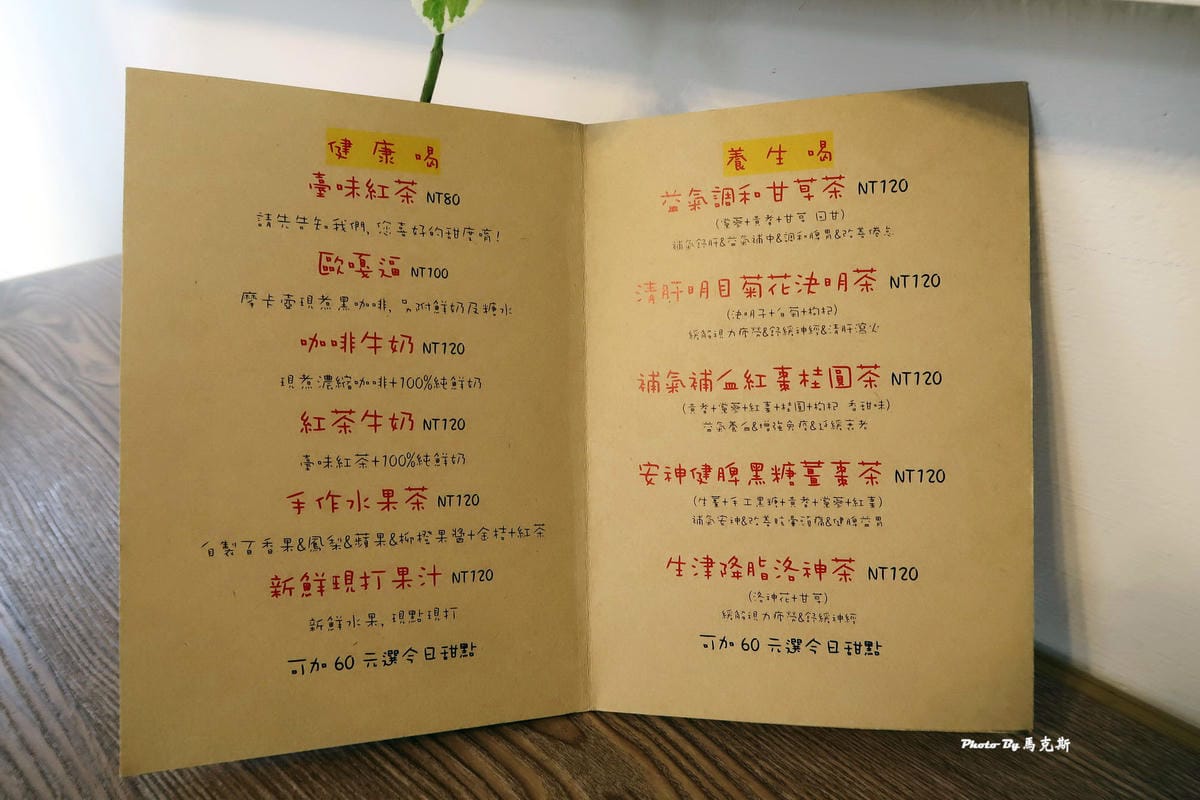 健康喝
臺味紅茶 NT80
請先告知我們, 您喜好的甜度唷!
歐嘎逼 NT100
摩卡壺現煮黑咖啡, 另附鮮奶及糖水
咖啡牛奶 NT120
現煮濃縮咖啡+100%純鮮奶
紅茶牛奶 NT120
臺味紅茶+100%純鮮奶
手作水果茶 NT120
自製百香果&鳳梨&蘋果&柳橙果醬+金桔+紅茶
新鮮現打果汁 NT120
新鮮水果, 現點現打
可加 60 元選今日甜點
養生喝
益氣調和甘草茶 NT120
(黨蔘+黃耆+甘草 回甘)
補氣舒肝&益氣補中&調和脾胃&改善倦怠
清肝明目菊花決明茶 NT120
(決明子+白菊+枸杞)
緩解視力疲勞&舒緩神經&清肝瀉火
補氣補血紅棗桂圓茶 NT120
(黃耆+黨蔘+紅棗+桂圓+枸杞 香甜味)
益氣養血&增強免疫&延緩衰老
安神健脾黑糖薑棗茶 NT120
(生薑+手工黑糖+黃耆+黨蔘+紅棗)
補氣安神&改善脘臺漬痛&健脾益胃
生津降脂洛神茶 NT120
(洛神花+甘草)
緩解視力疲勞&舒緩神經
可加 60 元選今日甜點
Photo By 馬克斯